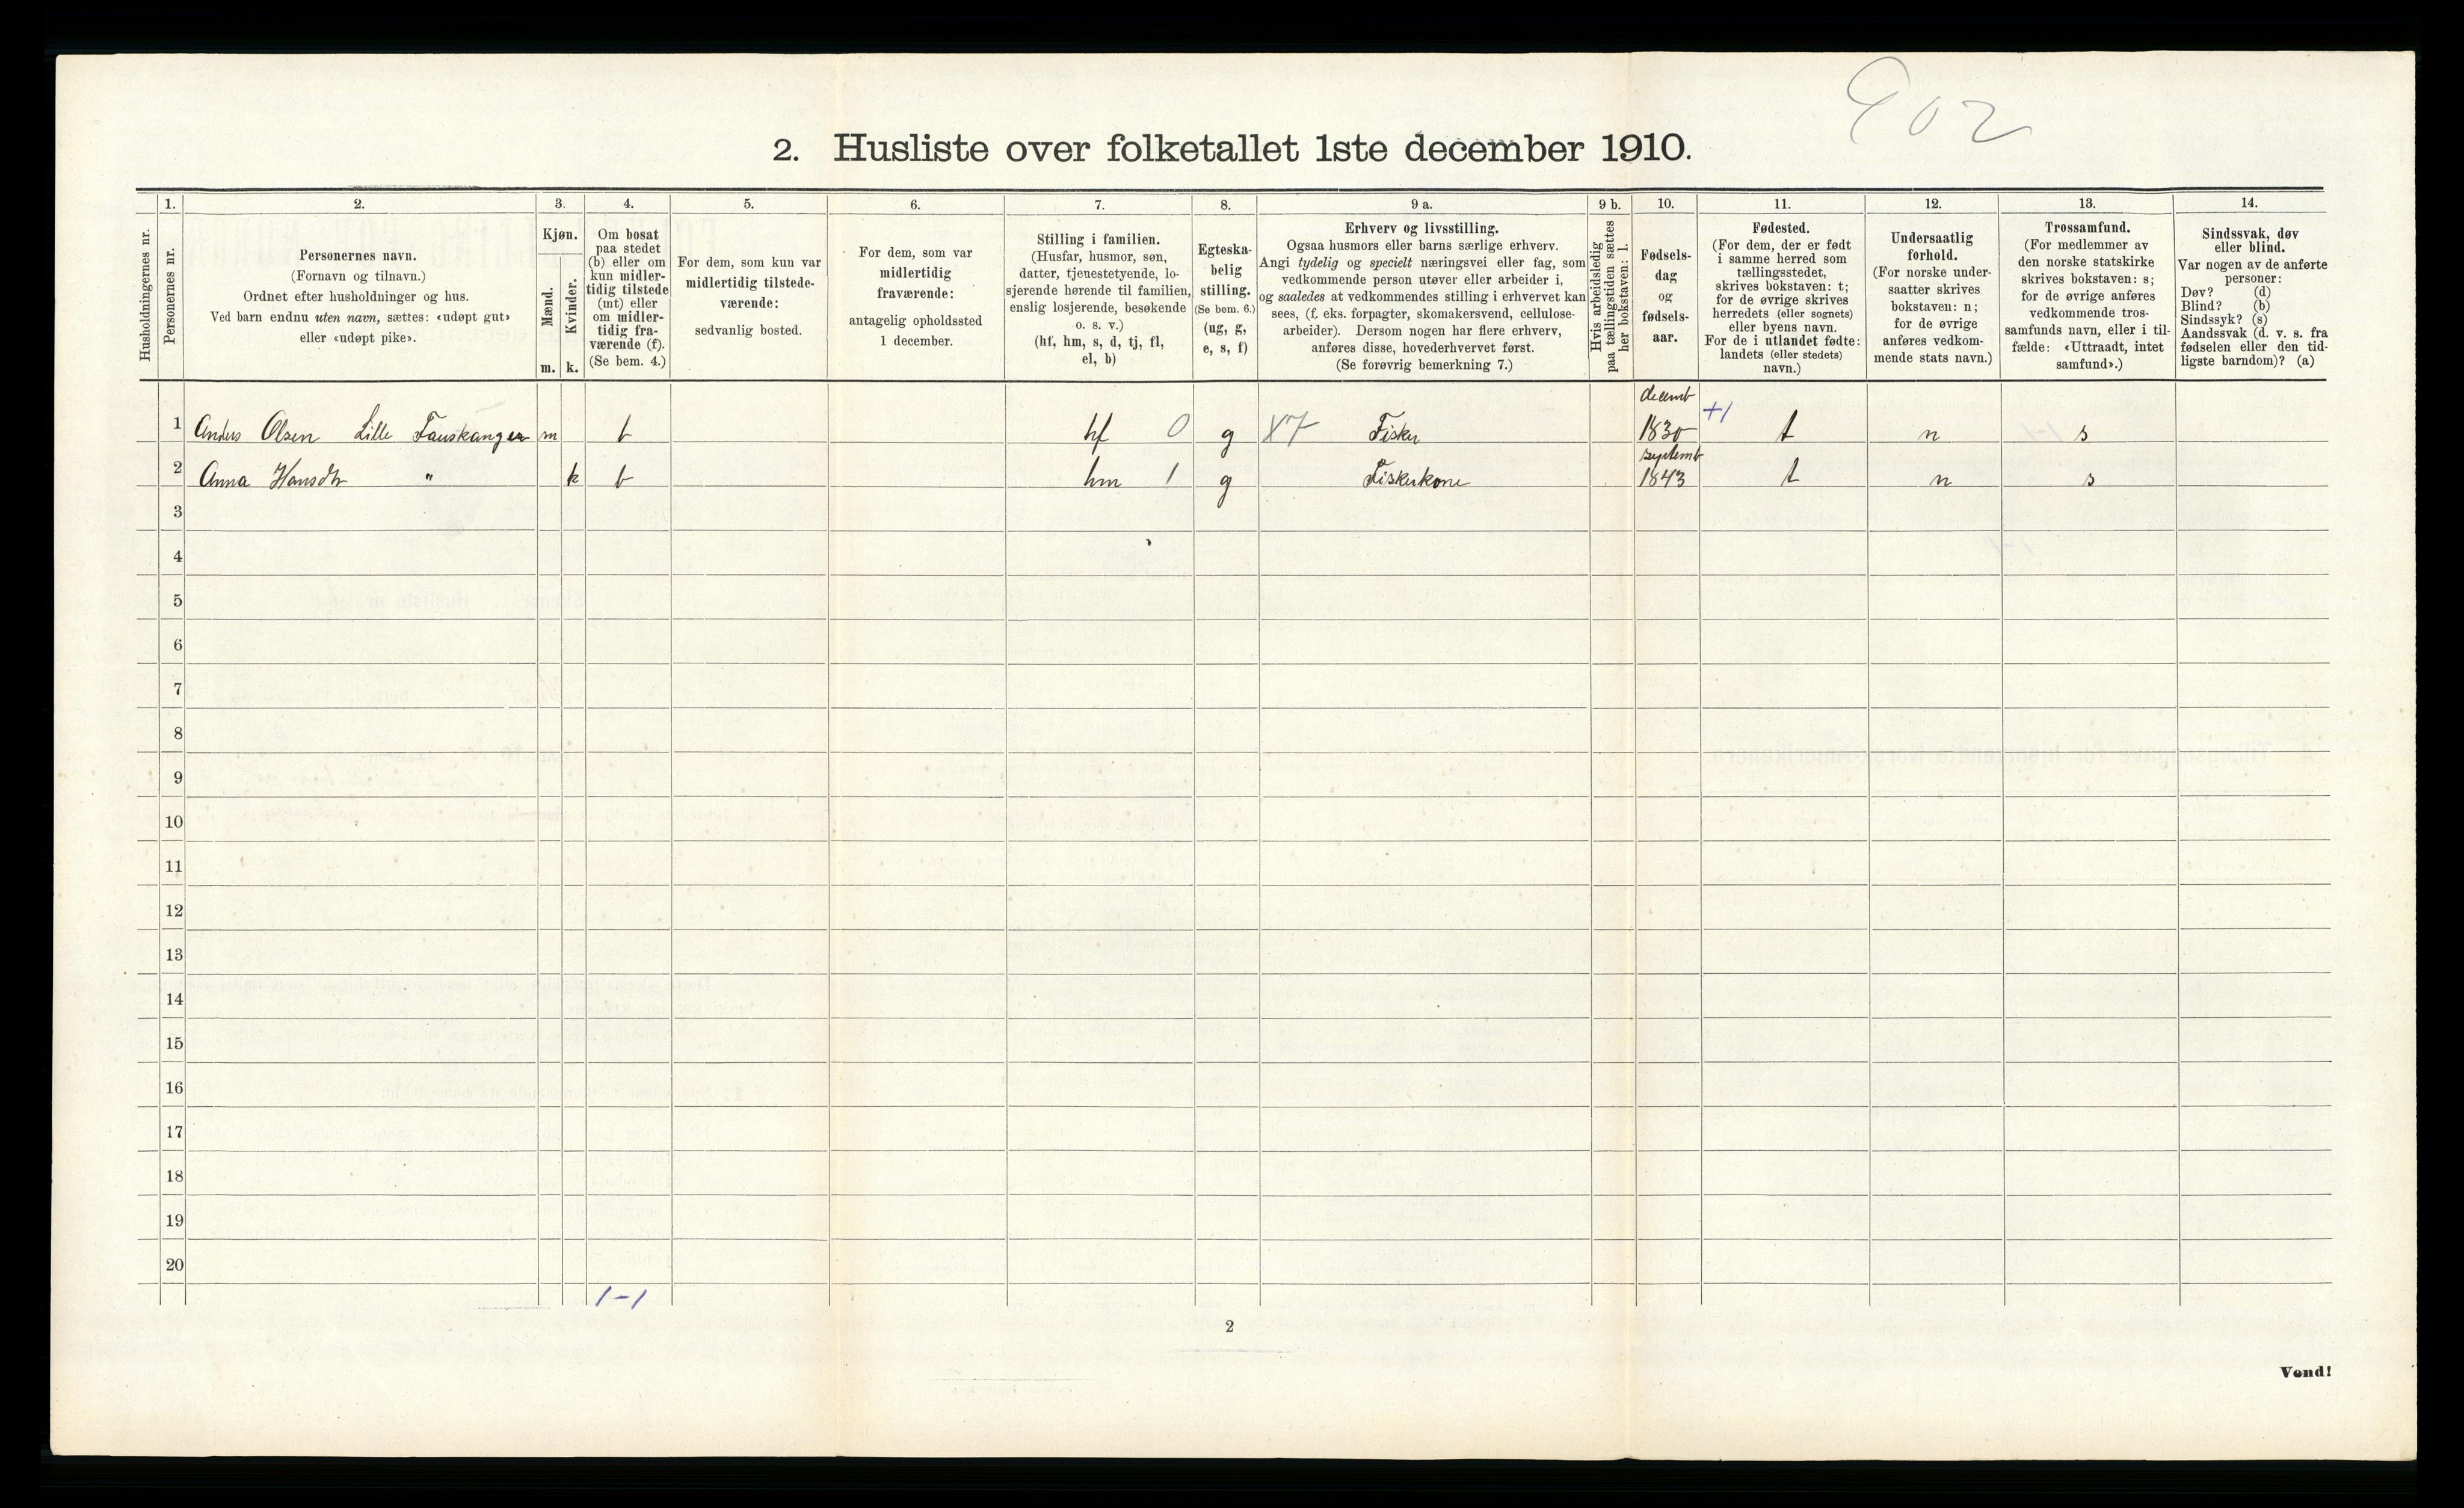 902
2. Husliste over folketallet 1ste december 1910.
Husholdningernes nr.
1.
Personernes nr.
2.
Personernes navn.
(Fornavn og tilnavn.)
Ordnet efter husholdninger og hus.
Ved barn endnu uten navn, sættes: «udøpt gut»
eller «udøpt pike».
3.
Kjøn.
Mænd.
Kvinder.
m. k.
4.
Om bosat
paa stedet
(b) eller om
kun midler-
tidig tilstede
(mt) eller
om midler-
tidig fra-
værende (f).
(Se bem. 4.)
5.
For dem, som kun var
midlertidig tilstede-
værende:
sedvanlig bosted.
6.
For dem, som var
midlertidig
fraværende:
antagelig opholdssted
1 december.
7.
Stilling i familien.
(Husfar, husmor, søn,
datter, tjenestetyende, lo-
sjerende hørende til familien,
enslig losjerende, besøkende
o. s. v.)
(hf, hm, s, d, tj, fl,
el, b)
8.
Egteska-
belig
stilling.
(Se bem. 6.)
(ug, g,
e, s, f)
9 a.
Erhverv og livsstilling.
Ogsaa husmors eller barns særlige erhverv.
Angi tydelig og specielt næringsvei eller fag, som
vedkommende person utøver eller arbeider i,
og saaledes at vedkommendes stilling i erhvervet kan
sees, (f. eks. forpagter, skomakersvend, cellulose-
arbeider). Dersom nogen har flere erhverv,
anføres disse, hovederhvervet først.
(Se forøvrig bemerkning 7.)
9 b.
Hvis arbeidsledig
paa tællingstiden sættes
her bokstaven: l.
10.
Fødsels-
dag
og
fødsels-
aar.
11.
Fødested.
(For dem, der er født
i samme herred som
tællingsstedet,
skrives bokstaven: t;
for de øvrige skrives
herredets (eller sognets)
eller byens navn.
For de i utlandet fødte:
landets (eller stedets)
navn.)
12.
Undersaatlig
forhold.
(For norske under-
saatter skrives
bokstaven: n;
for de øvrige
anføres vedkom-
mende stats navn.)
13.
Trossamfund.
(For medlemmer av
den norske statskirke
skrives bokstaven: s;
for de øvrige anføres
vedkommende tros-
samfunds navn, eller i til-
fælde: «Uttraadt, intet
samfund».)
14.
Sindssvak, døv
eller blind.
Var nogen av de anførte
personer:
Døv? (d)
Blind? (b)
Sindssyk? (s)
Aandssvak (d. v. s. fra
fødselen eller den tid-
ligste barndom)? (a)
1 Anders Olsen Lille Fauskanger m b hf 0 g X7 Fisker decemb 1830 +1 t n s
2 Anna Hansdtr " k b hm 1 g Fiskerkone septemb 1843 t n s
3
4
5
6
7
8
9
10
11
12
13
14
15
16
17
18
19
20
1-1
2
Vend!